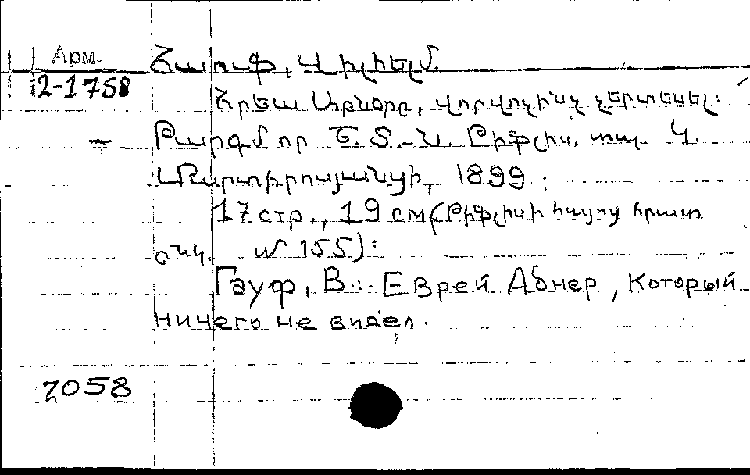 Арм. Հաուֆ, Վիլհելմ
12-1758 Հրեա Աբները, վոր վոչինչ չեր տեսել:
Թարգմ Տ.-Ն. Թիֆլիս, տպ. Կ.
Մարտիրոսյանցի, 1899.
17 стр., 19 см (Թիֆլիսի հայոց հրատ
ընկ. № 155):
Гауф, В. Еврей Абнер, который
ничего не видел.
7058